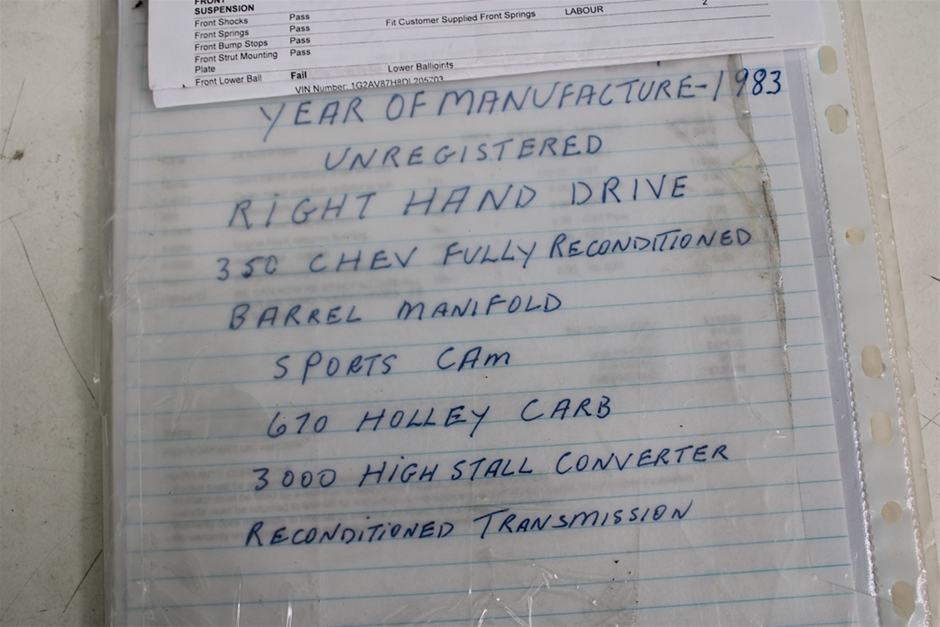 FRONT
SUSPENSION
Front Shocks Pass
Front Springs Pass Fit Customer Supplied Front Springs LABOUR 2
Front Bump Stops Pass
Front Strut Mounting Pass
Plate
Front Lower Ball Fail Lower Balljoints
VIN Number:
YEAR OF MANUFACTURE-1983
UNREGISTERED
RIGHT HAND DRIVE
350 CHEV FULLY RECONDITIONED
BARREL MANIFOLD
SPORTS CAM
670 HOLLEY CARB
3000 HIGH STALL CONVERTER
RECONDITIONED TRANSMISSION